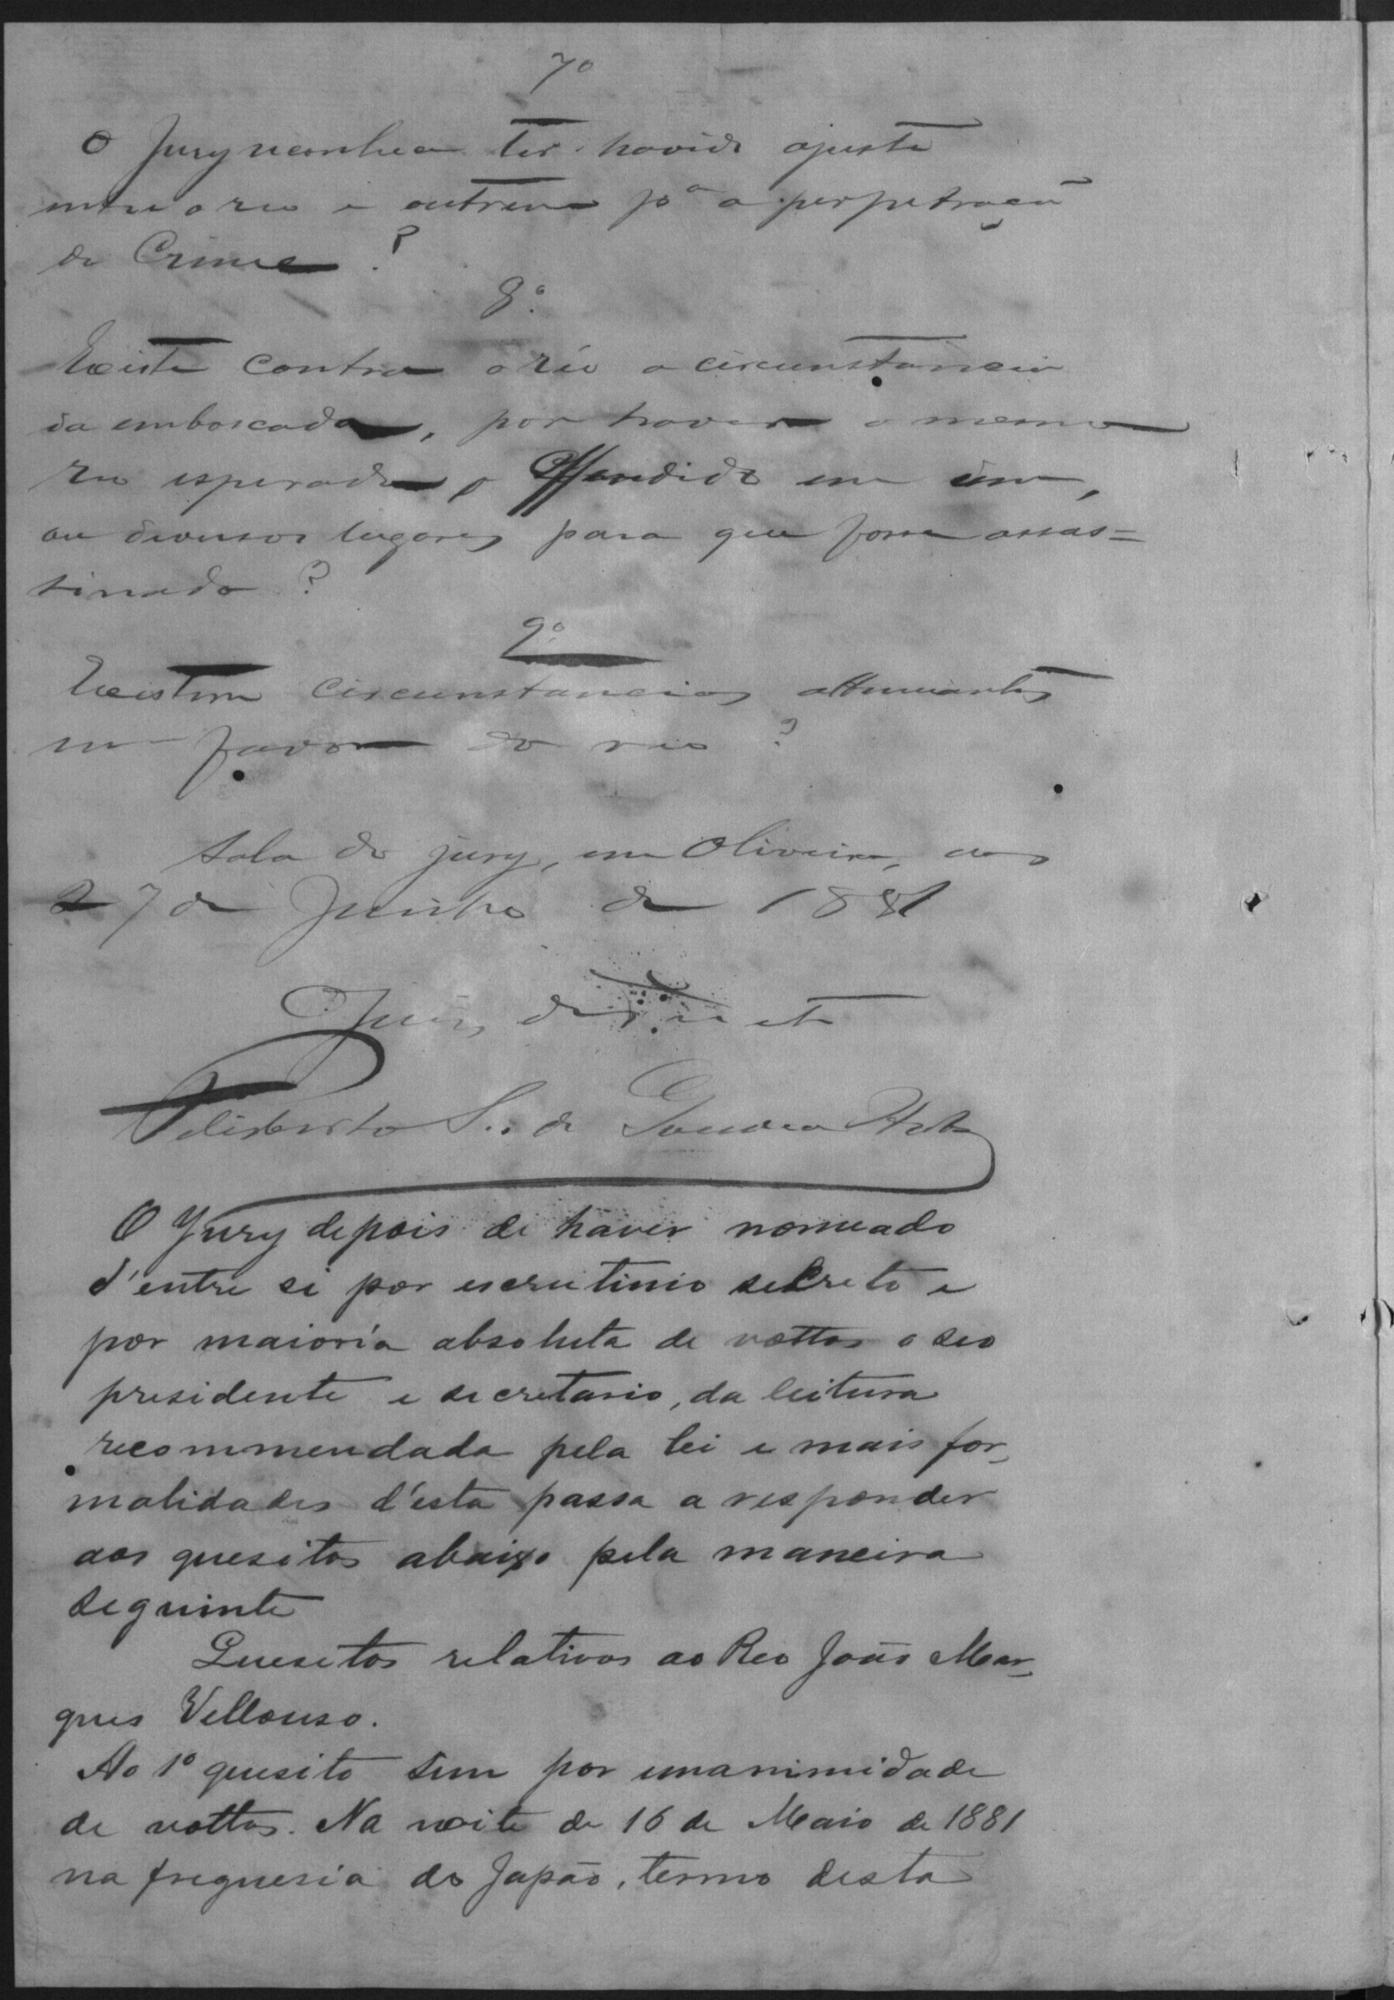 7º
O Jury reconhece ter havido ajuste
entre o reo e outrem pª a perpetração
do Crime?
8º
Existe contra o réo a circunstancia
da emboscada, por haver o mesmo
reo esperado o Offendido em um,
ou diversos lugares para que fosse assas=
sinado?
9º
Existem circunstancias attenuantes
em favor do reo?
Sala do jury, em Oliveira, aos
27 de Junho de 1881
O Juiz de Direito
Felisberto S. de Gouvea Horta
O Jury depois de haver nomeado
d'entre si por escrutinio secreto e
por maioria absoluta de vottos o seo
presidente e secretario, da leitura
recommendada pela lei e mais for-
malidades d'esta passa a responder
aos quesitos abaixo pela maneira
seguinte
Quesitos relativos ao Reo João Mar-
ques Vellouso.
Ao 1º quesito sim por unanimidade
de vottos. Na noite de 16 de Maio de 1881
na freguesia do Japão, termo desta